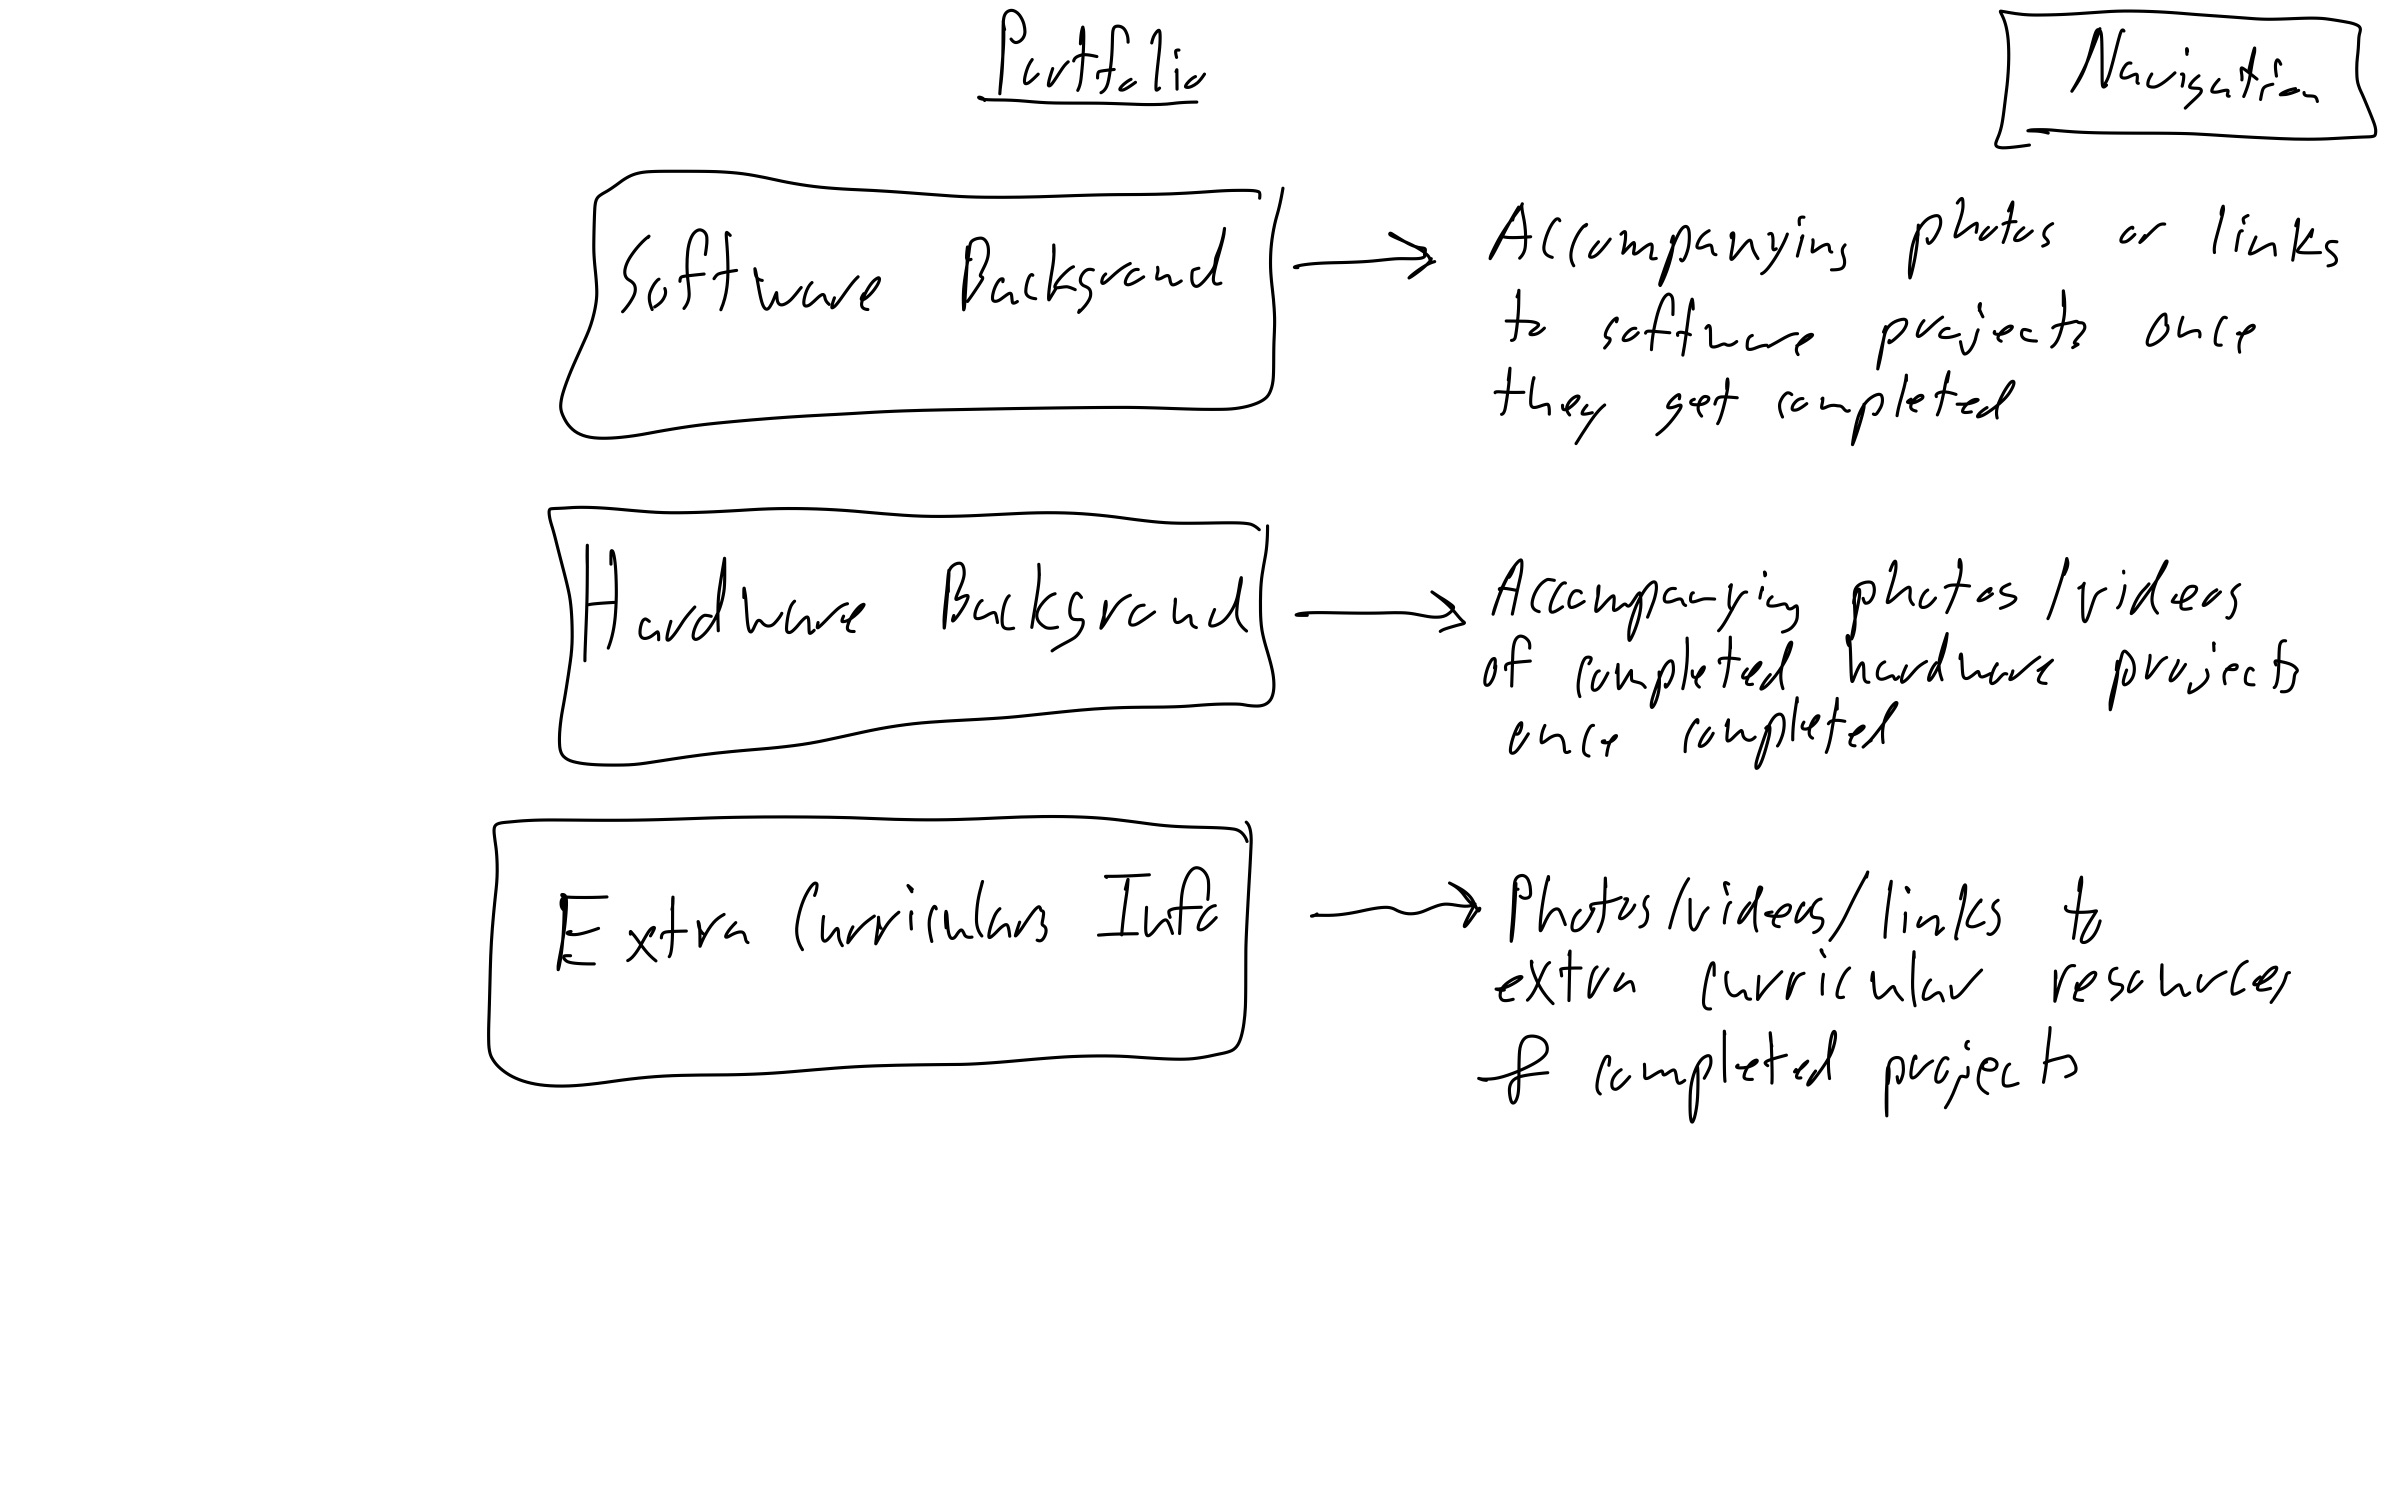 Portfolio
Navigation
Software Background
Accompanying photos or links
to software projects once
they get completed
Hardware Background
Accompanying photos/videos
of completed hardware projects
once completed
Extra Curricular Info
Photos/videos/links to
extra curricular resources
of completed projects